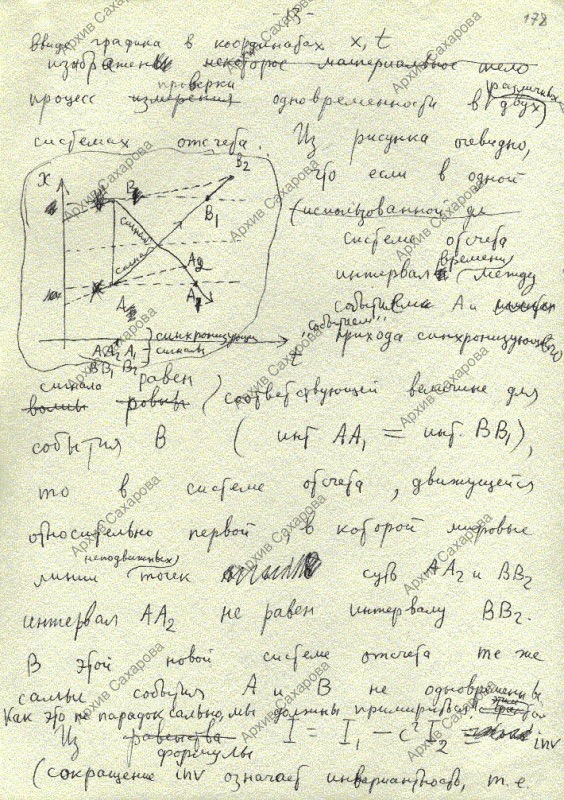 -13-
178
ввиде графика в координатах x, t
изображены некоторое материальное тело
процесс измерения проверки одновременности в двух различных
системах отсчета. Из рисунка очевидно,
что если в одной
(использованной
системе отсчета
интервал времени (между
событием A и
"событием" прихода синхронизующего
X
B
B2
B1
A2
A1
A
сигнал
сигнал
t
AA2 A1
BB1 B2
синхронизующие
сигналы
сигнала равен
волны равны) соответствующей величине для
события B (инт AA1 = инт. BB1),
то в системе отсчета, движущейся
относительно первой, в которой мировые
линии неподвижных точек суть AA2 и BB2
интервал AA2 не равен интервалу BB2.
В этой новой системе отсчета те же
самые события A и B не одновременны
Как это не парадоксально, мы должны примириться с этим
Из равенства формулы I = I1 − c²I2 inv
(сокращение inv означает инвариантность, т.е.
Архив Сахарова